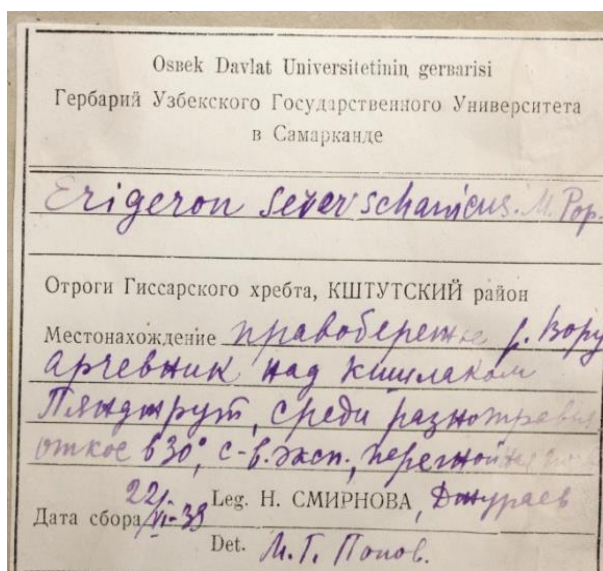 Osbek Davlat Universitetinin gerbarisi
Гербарий Узбекского Государственного Университета
в Самарканде
Erigeron severschanicus. M. Pop.
Отроги Гиссарского хребта, КШТУТСКИЙ район
Местонахождение правобережье р. Вору
арчевник над кишлаком
Пянджрут, среди разнотравия
откос в 30°, с-в. эксп.,
Дата сбора 22/VI-39 Leg. Н. СМИРНОВА, Джураев
Det. М. Г. Попов.